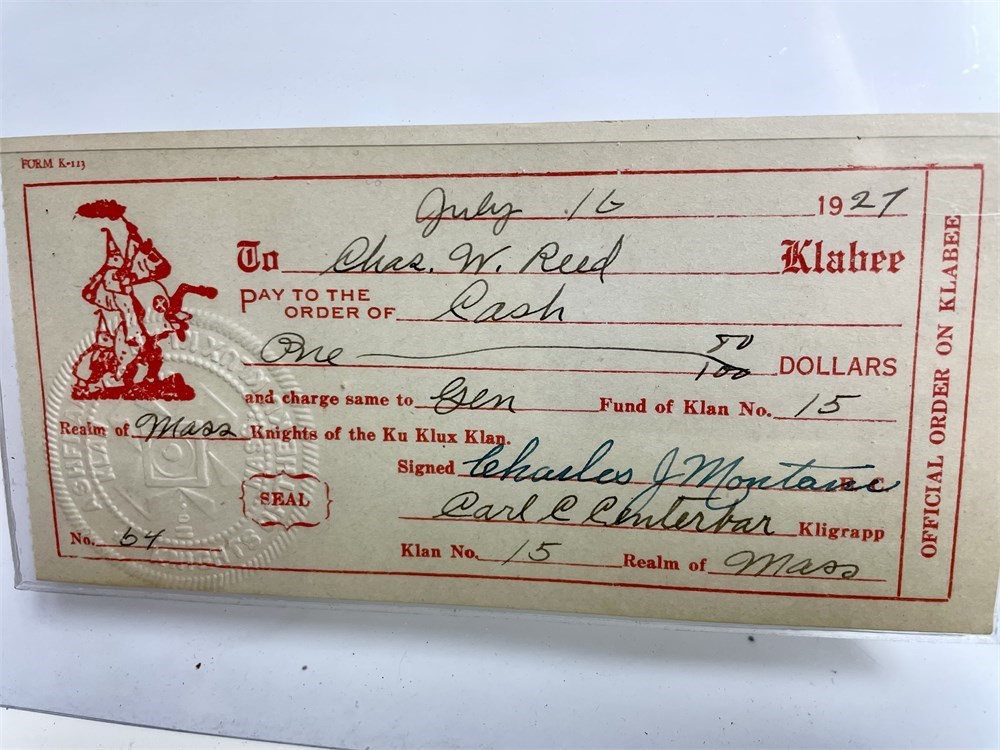 FORM K-113
July 16 1927
To Chas. W. Reed Klabee
PAY TO THE ORDER OF Cash
One 50/100 DOLLARS
and charge same to Gen Fund of Klan No. 15
Realm of Mass Knights of the Ku Klux Klan.
Signed Charles J Montane
SEAL
Carl C Centerbar Kligrapp
No. 64
Klan No. 15 Realm of Mass
OFFICIAL ORDER ON KLABEE